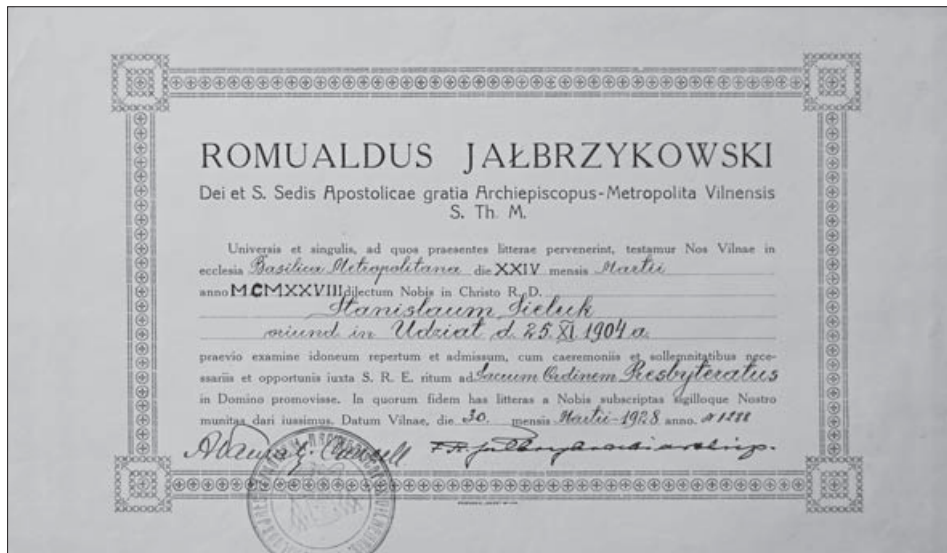 ROMUALDUS JAŁBRZYKOWSKI
Dei et S. Sedis Apostolicae gratia Archiepiscopus-Metropolita Vilnensis
S. Th. M.
Universis et singulis, ad quos praesentes litterae pervenerint, testamur Nos Vilnae in
ecclesia Basilica Metropolitana die XXIV mensis Martii
anno MCMXXVIII dilectum Nobis in Christo R. D.
Stanislaum Sieluk
oriund in Udział d. 25. XI 1904 a.
praevio examine idoneum repertum et admissum, cum caeremoniis et sollemnitatibus nece-
ssariis et opportunis iuxta S. R. E. ritum ad Sacrum Ordinem Presbyteratus
in Domino promovisse. In quorum fidem has litteras a Nobis subscriptas sigilloque Nostro
munitas dari iussimus. Datum Vilnae, die 30. mensis Martii-1928 anno. N 1288